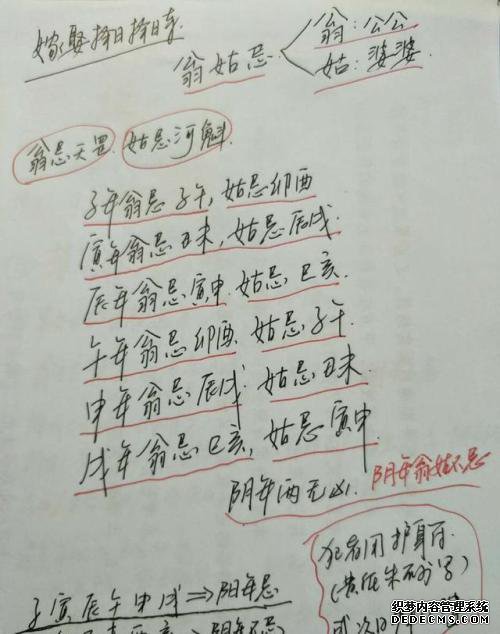 嫁娶择日择时
翁姑忌
翁：公公
姑：婆婆
翁忌天罡 姑忌河魁
子年翁忌子午，姑忌卯酉
寅年翁忌丑未，姑忌辰戌
辰年翁忌寅申 姑忌巳亥
午年翁忌卯酉 姑忌子午
申年翁忌辰戌 姑忌丑未
戌年翁忌巳亥，姑忌寅申
阴年两无凶 阴年翁姑不忌
犯者用护身符
(黄纸朱砂写)
子寅辰午申戌⇒阳年忌
阴年不忌
脉脉内容管理系统
www.dbxxxx.com